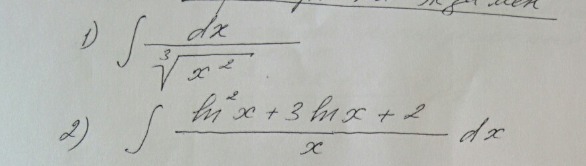 1) ∫ dx / ∛(x²)
2) ∫ (ln²x + 3 ln x + 2) / x dx